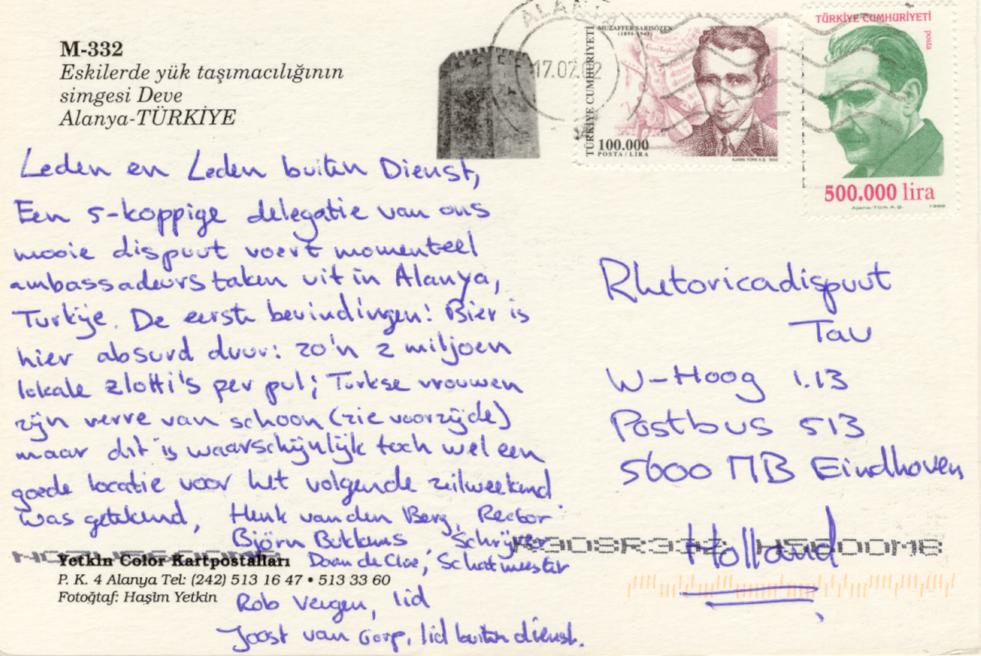 M-332
Eskilerde yük taşımacılığının
simgesi Deve
Alanya-TÜRKİYE
ALANYA
17.02.02
MUZAFFER SARISÖZEN
TÜRKİYE CUMHURİYETİ
100.000
POSTA / LİRA
TÜRKİYE CUMHURİYETİ
posta
500.000 lira
Leden en Leden buiten Dienst,
Een 5-koppige delegatie van ons
mooie dispuut voert momenteel
ambassadeurs taken uit in Alanya,
Turkije. De eerste bevindingen: Bier is
hier absurd duur: zo'n 2 miljoen
lokale zlotti's per pul; Turkse vrouwen
zijn verre van schoon (zie voorzijde)
maar dit is waarschijnlijk toch wel een
goede locatie voor het volgende zeilweekend
was getekend, Henk van den Berg, Rector
Björn Bukkums, Schrijver
Daan de Cloe, Schatmeester
Rob Vergen, lid
Joost van Gorp, lid buiten dienst.
Rhetoricadispuut
Tau
W-Hoog 1.13
Postbus 513
5600 MB Eindhoven
Holland
Yetkin Color Kartpostalları
P. K. 4 Alanya Tel: (242) 513 16 47 • 513 33 60
Fotoğtaf: Haşim Yetkin